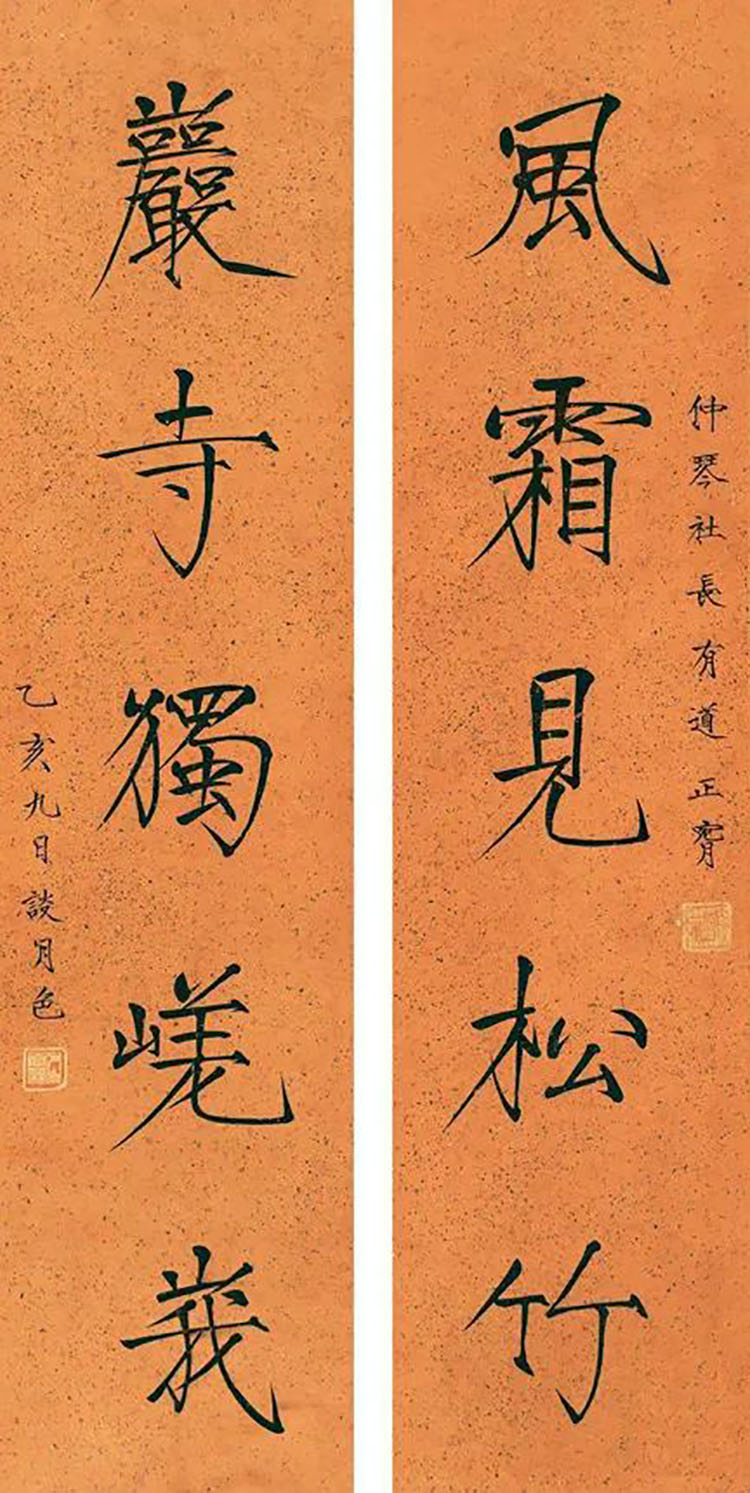 仲琴社長有道正䏿
風霜見松竹
巖寺獨嵯峩
乙亥九日談月色